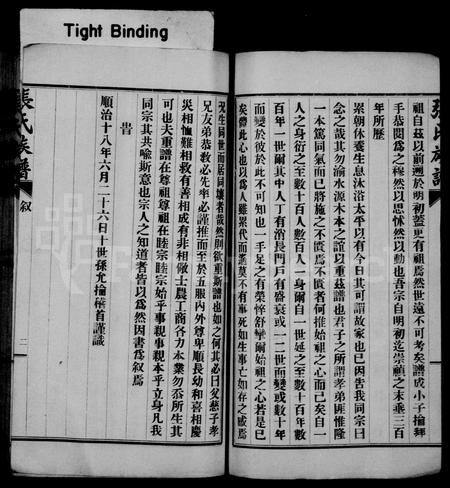 Tight Binding
張氏族譜
祖自茲以前遡於明初蓋更有祖焉然世遠不可考矣譜成小子掄拜
手恭閱爲之穆然以思怵然以動也吾宗自明初迄崇禎之末垂三百
年所歷
累朝休養生息沐浴太平以有今日其可謂故家也已因告我同宗曰
念之哉其勿渝水源木本之誼以重茲譜也君子之所謂孝弟匪惟隆
一本篤同氣而已將施之不匱焉不匱者何推始祖之心而已矣自一
人之身衍之至數十百人數百人一身爾自一世延之至數十百年數
百年一世爾其中人丁有消長門戶有盛衰或一二世而變或數十年
而變於彼於此不可知也一手足之有榮悴舒攣爾始祖之心若是已
矣體此心也以爲人雖累代而遙莫不有事死如生事亡如存之感焉
兄生同世而居同壤者哉然則欲重斯譜也如之何其必曰父慈子孝
兄友弟恭教必先率必謹推而至於五服內外尊卑順長幼和喜相慶
災相恤難相救有善相成有非相儆士農工商各力本業勿忝所生其
可也夫重譜在尊祖尊祖在睦宗睦宗始乎事親事親本乎立身凡我
同宗其共喩斯意也宗人之知道者皆以爲然因書爲叙焉
旹
順治十八年六月二十六日十世孫允掄稽首謹識
張氏族譜
叙
二